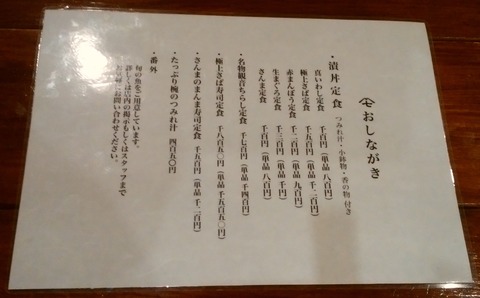 おしながき
・漬丼定食 つみれ汁・小鉢物・香の物 付き
真いわし定食 千百円（単品 八百円）
極上さば定食 千五百円（単品 千二百円）
赤まんぼう定食 千二百円（単品 九百円）
生まぐろ定食 千三百円（単品 千円）
さんま定食 千百円（単品 八百円）
・名物観音ちらし定食 千七百円（単品 千四百円）
・極上さば寿司定食 千八百五〇円（単品 千五百五〇円）
・さんまのまんま寿司定食 千五百円（単品 千二百円）
・たっぷり椀のつみれ汁 四百五〇円
・番外
旬の魚をご用意しています。
詳しくは店内の掲示もしくはスタッフまで
お気軽にお問い合わせください。